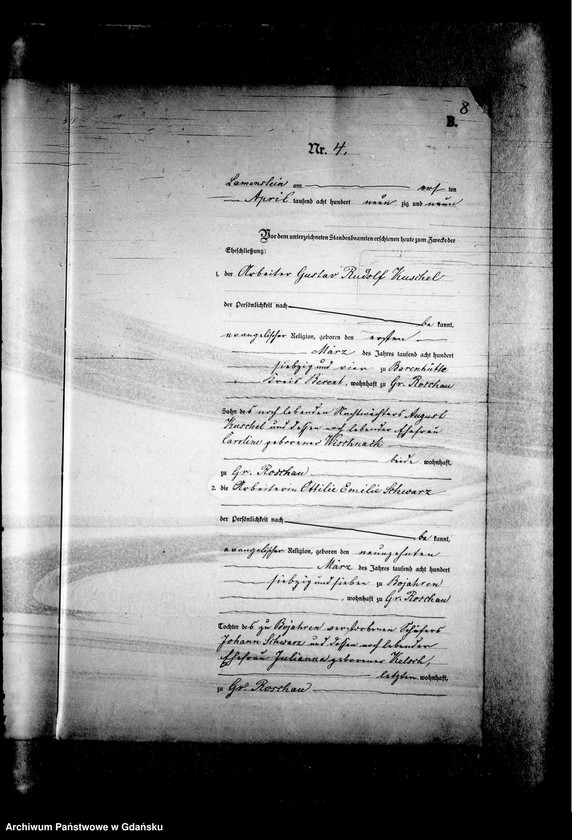 8
B.
Nr. 4.
Lamenstein am ersten
April tausend acht hundert neun zig und neun
Vor dem unterzeichneten Standesbeamten erschienen heute zum Zwecke der
Eheschließung:
1. der Arbeiter Gustav Rudolf Kuschel
der Persönlichkeit nach
be kannt,
evangelischer Religion, geboren den ersten
März des Jahres tausend acht hundert
siebzig und vier zu Barenhütte
Kreis Berent, wohnhaft zu Gr. Roschau
Sohn des noch lebenden Nachtwächters August
Kuschel und dessen noch lebender Ehefrau
Caroline geborener Wischnack
beide wohnhaft,
zu Gr. Roschau
2. die Arbeiterin Ottilie Emilie Schwarz
der Persönlichkeit nach
be kannt,
evangelischer Religion, geboren den neunzehnten
März des Jahres tausend acht hundert
siebzig und sieben zu Bojahren
, wohnhaft zu Gr. Roschau
Tochter des zu Bojahren verstorbenen Schäfers
Johann Schwarz und dessen noch lebender
Ehefrau Julianna geborener
letzten wohnhaft,
zu Gr. Roschau
Archiwum Państwowe w Gdańsku